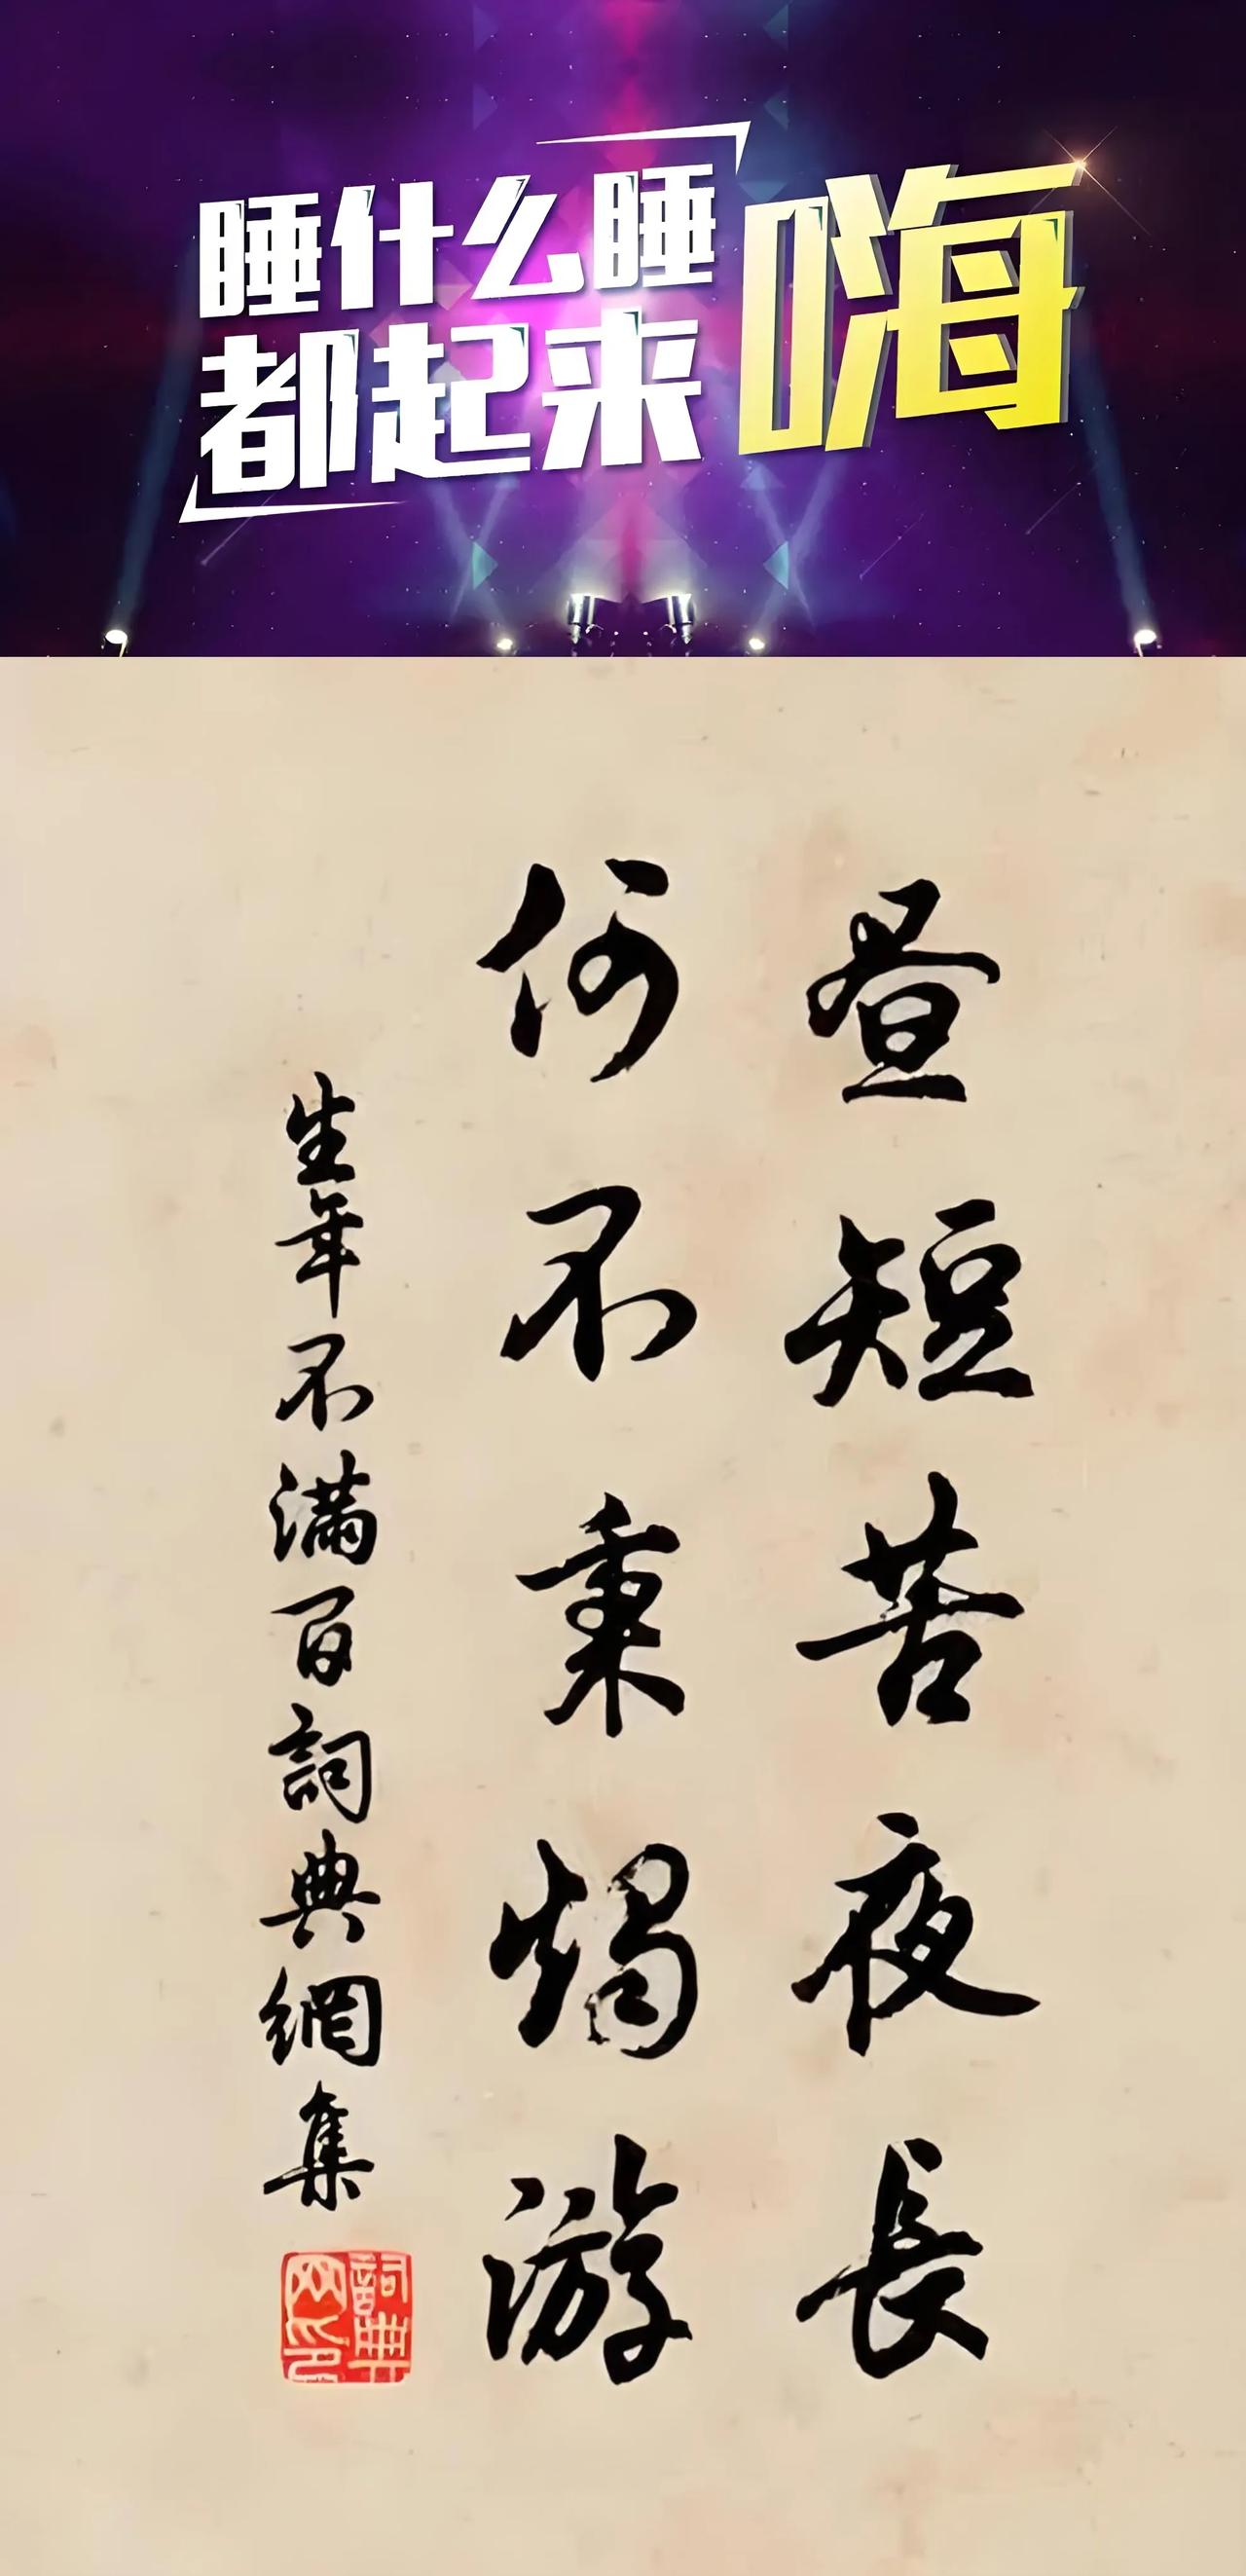 睡什么睡
都起来
嗨
昼短苦夜長
何不秉燭游
生年不满百詞典網集
詞典
网印